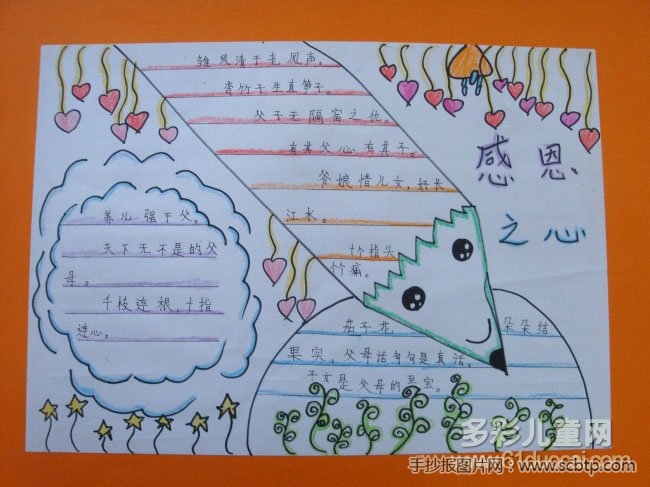 雏凤清于老凤声。
青竹子生直笋子。
父子无隔宿之仇。
有其父必有其子。
爷娘惜儿女,好长
江水。
十个指头
个痛。
感恩
之心
养儿强于父。
天下无不是的父
母。
千枝连根,十指
连心。
茄子花
朵朵结
果实,父母话句句是真话,
子女是父母的至宝。
多彩儿童网
www.61duocai.com
手抄报图片网:www.scbtp.com